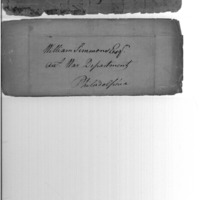 William Simmons Esqr
acct War Department
Philadelphia